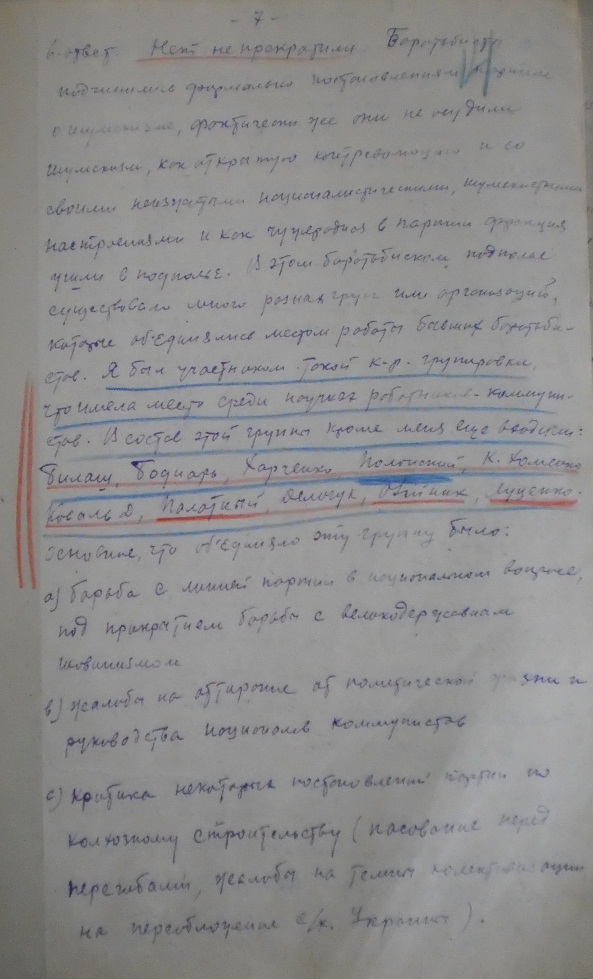 - 7 -
6. ответ. Нет не прекратили. Боротьбисты
подчинились формально постановлениям партии
о шумскизме, фактически же они не осудили
шумскизм, как открытую контрреволюцию и со
своими неизжитыми националистическими, шумскистскими
настроениями и как чужеродная в партии фракция
ушли в подполье. В этом боротьбиском подполье
существовало много разных групп или организаций,
которые об'единялись местом работы бывших боротьби-
стов. Я был участником такой к-р. групировки,
что имела место среди научных работников-коммуни-
стов. В состав этой группы кроме меня еще входили:
Билаш, Боднарь, Харченко Полонский, К. Хоменко
Коваль Д, Палатный, Демчук, Олийник, Луценко.
Основное, что об'единяло эту группу было:
а) борьба с линией партии в национальном вопросе,
под прикрытием борьбы с великодержавным
шовинизмом
в) жалобы на оттирание от политической жизни и
руководства националов коммунистов
с) критика некоторых постановлений партии по
колхозному строительству (пасование перед
перегибами, жалобы на темпы коллективизации
на переобложение с/х. Украины).